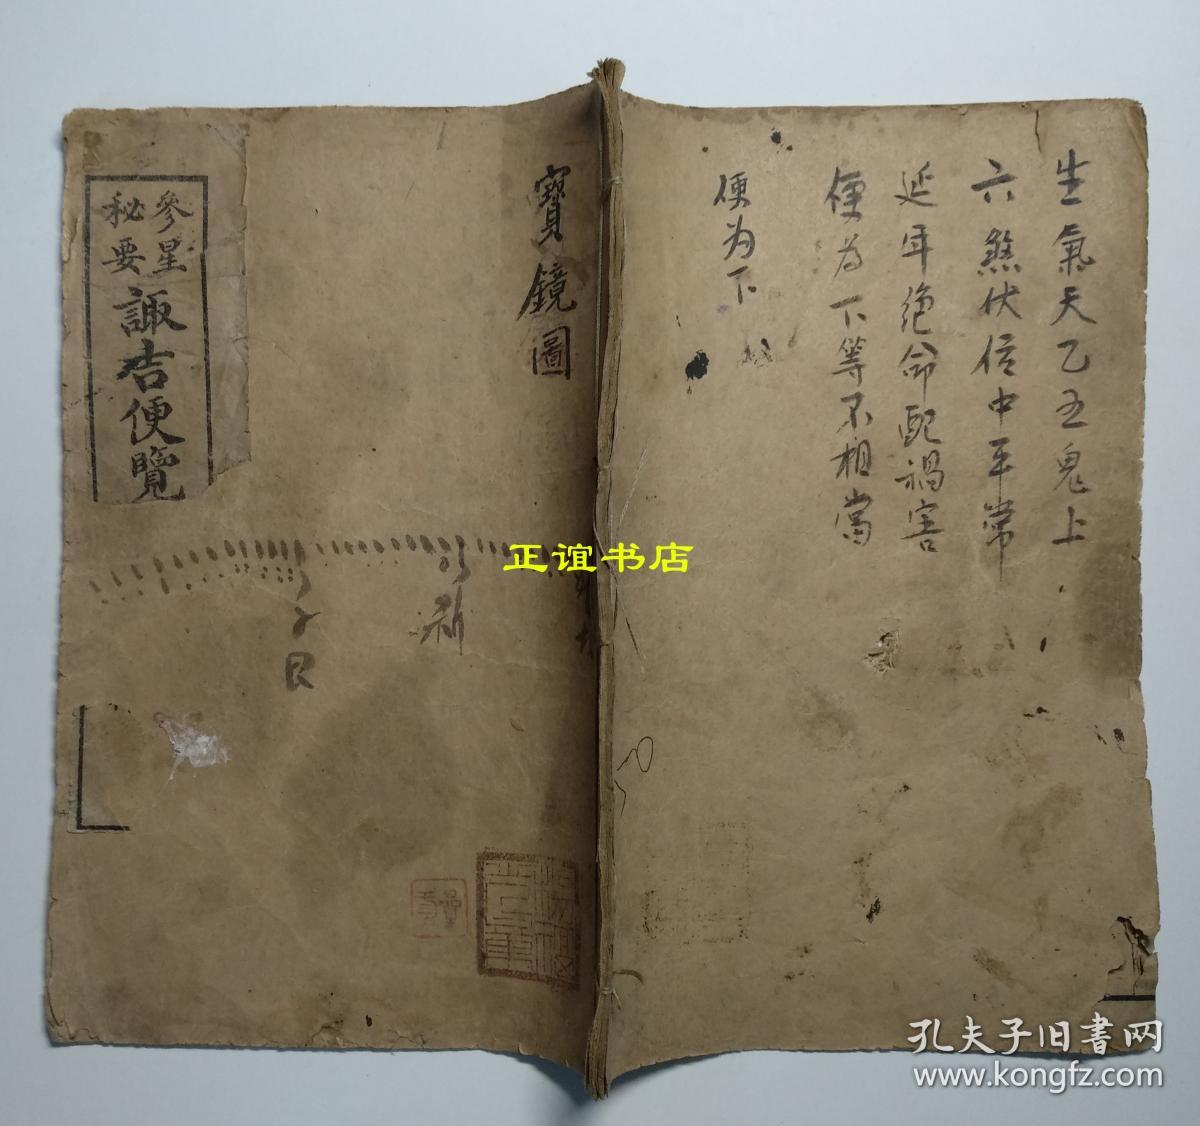 生氣天乙五鬼上
六煞伏位中平常
延年绝命配禍害
便為下等不相當
便为下
寳鏡圖
參星
秘要
諏吉便覽
正谊书店
孔夫子旧书网
www.kongfz.com